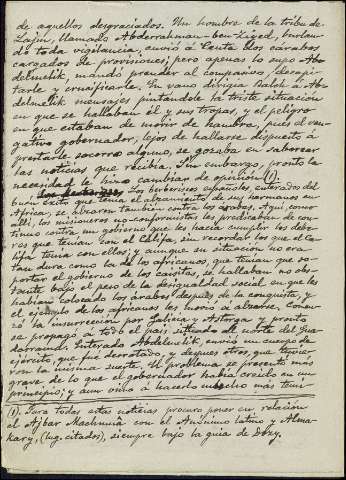 de aquellos desgraciados. Un hombre de la tribu de
Lajm, llamado Abderrahman-ben-Ziyed, burlan-
do toda vigilancia, envió á Ceuta dos cárabos
cargados de provisiones; pero apenas lo supo Ab-
delmelik, mandó prender al compasivo, decapi-
tarle y crucificarle. En vano dirigía Balch á Ab-
delmelik mensajes pintándole la triste situación
en que se hallaban él y sus tropas, y el peligro
en que estaban de morir de hambre, pues el ven-
gativo gobernador, lejos de hallarse dispuesto á
prestarle socorro alguno, se gozaba en saborear
las noticias que recibía. Sin embargo, pronto la
necesidad le hizo cambiar de opinión (1).
Los berberiscos españoles, enterados del
buen éxito que tenía el alzamiento de sus hermanos en
Africa, se alzaron también contra los árabes. Aquí, como
allí, los misioneros no conformistas les predicaban de con-
tinuo contra un gobierno que les hacía cumplir los debe-
res que tenían con el Califa, sin recordar los que el Ca-
lifa tenía con ellos; y aunque su situación no era
tan dura como la de los africanos, que tenían que so-
portar el gobierno de los caisitas, se hallaban no obs-
tante bajo el peso de la desigualdad social en que les
habían colocado los árabes después de la conquista, y
el ejemplo de los africanos les movió á alzarse. Comen-
zó la insurrección por Galicia y Astorga y pronto
se propagó á todo el país situado al norte del Gua-
darrama. Enterado Abdelmelik, envió un cuerpo de
ejército, que fué derrotado, y después otros, que tuvie-
ron la misma suerte. El problema se presentaba más
grave de lo que el gobernador había creido en un
principio; y aun vino á hacerlo mucho más temi-
(1). Para todas estas noticias procuro poner en relación
el Ajbar Machmuâ con el Anónimo latino y Alma-
kary, (lug. citados), siempre bajo la guía de Dozy.